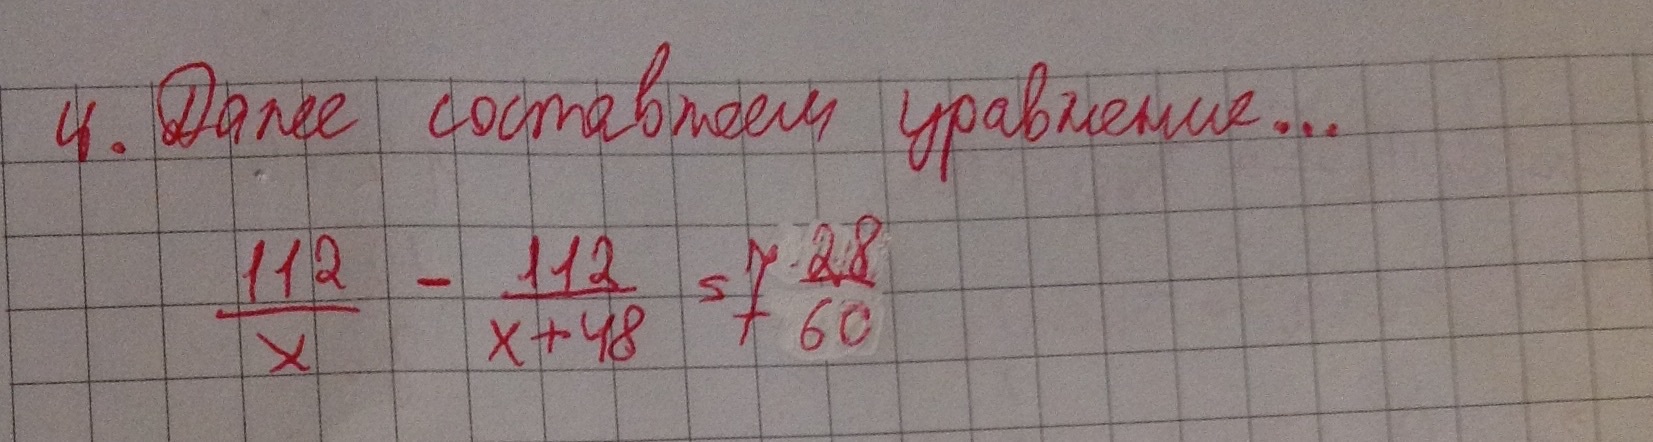 4. Далее составляем уравнение...
112/x - 112/(x+48) = 7 28/60